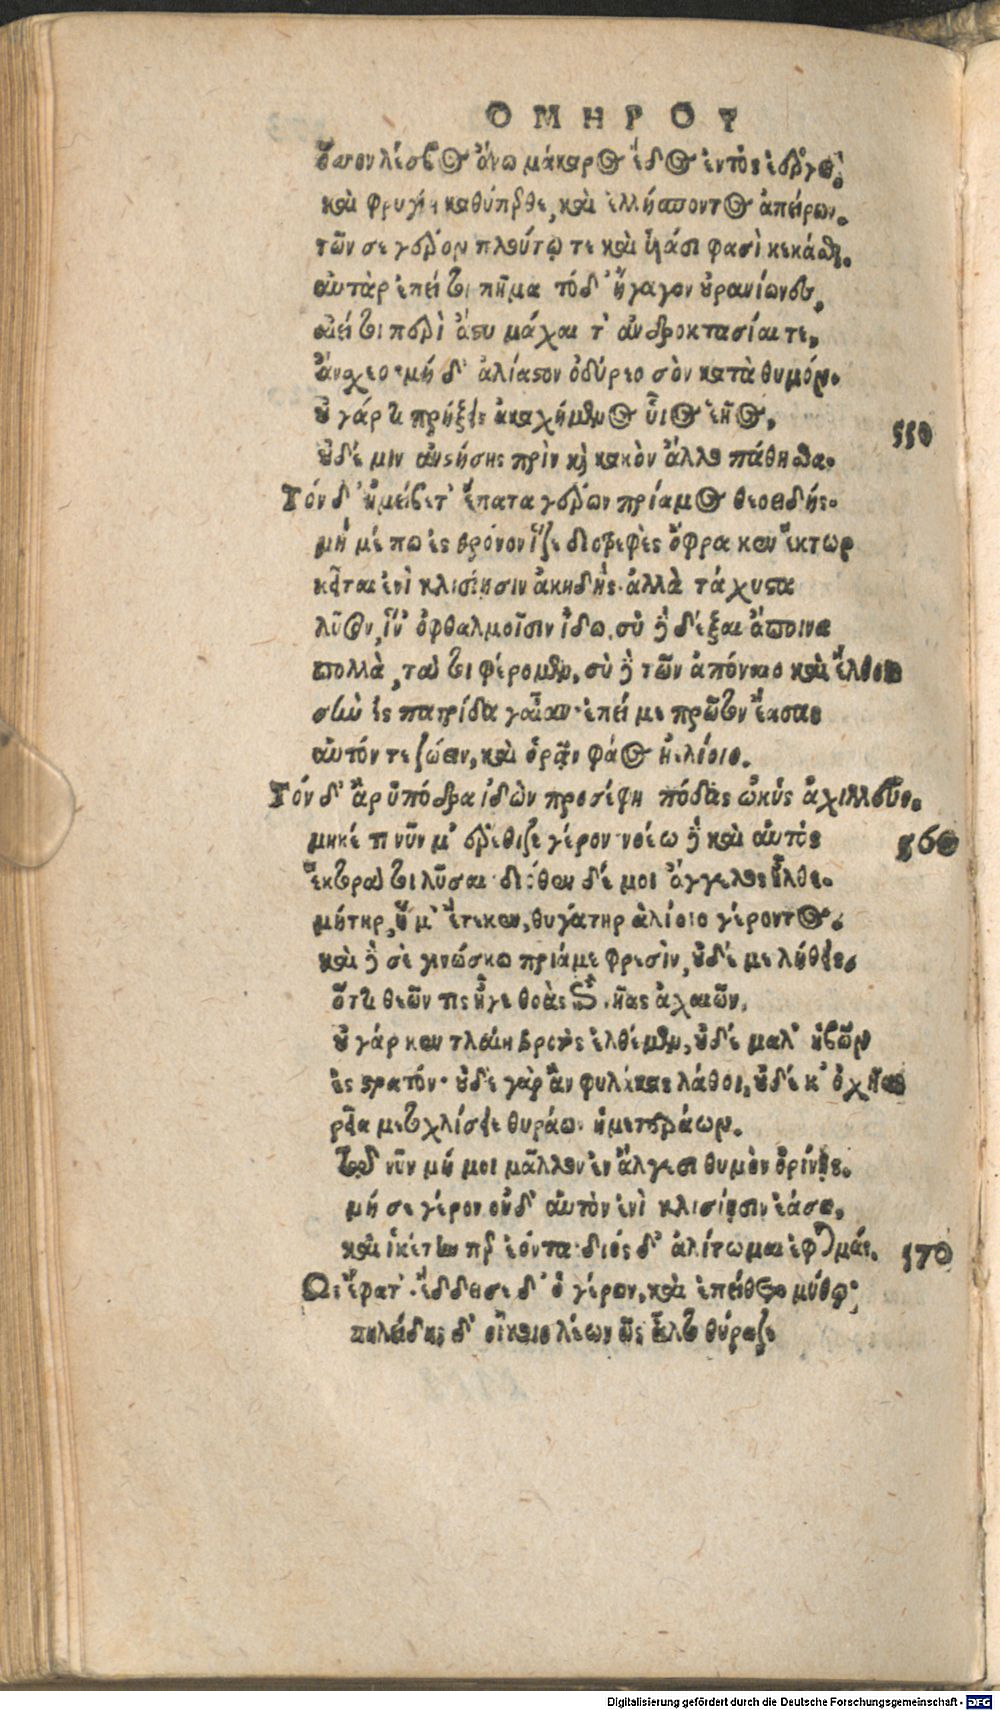 ΟΜΗΡΟΥ
ὅσσον λέσβος ἄνω μάκαρος ἕδος ἐντὸς ἐέργει,
καὶ φρυγίη καθύπερθε, καὶ ἑλλήσποντος ἀπείρων.
τῶν σε γέρον πλούτῳ τε καὶ υἱάσι φασὶ κεκάσθαι.
αὐτὰρ ἐπεί τοι πῆμα τόδ' ἤγαγον οὐρανίωνες,
αἰεί τοι περὶ ἄστυ μάχαι τ' ἀνδροκτασίαι τε,
ἄνσχεο· μὴ δ' ἀλίαστον ὀδύρεο σὸν κατὰ θυμόν.
οὐ γάρ τι πρήξεις ἀκαχήμενος υἷος ἑῆος,
550
οὐδέ μιν ἀνστήσης πρὶν καὶ κακὸν ἄλλο πάθησθα.
Τὸν δ' ἠμείβετ' ἔπειτα γέρων πρίαμος θεοειδής.
μή μέ πω ἐς θρόνον ἷζε διοτρεφὲς ὄφρα κεν ἕκτωρ
κεῖται ἐνὶ κλισίησιν ἀκηδής· ἀλλὰ τάχιστα
λῦσον, ἵν' ὀφθαλμοῖσιν ἴδω, σὺ δὲ δέξαι ἄποινα
πολλὰ, τά τοι φέρομεν, σὺ δὲ τῶν ἀπόναιο καὶ ἔλθοις
σὴν ἐς πατρίδα γαῖαν· ἐπεί με πρῶτον ἔασας
αὐτόν τε ζώειν, καὶ ὁρᾷν φάος ἠελίοιο.
Τὸν δ' ἄρ ὑπόδρα ἰδὼν προσέφη πόδας ὠκὺς ἀχιλλεύς.
μηκέτι νῦν μ' ἐρέθιζε γέρον· νοέω δὲ καὶ αὐτὸς
560
ἕκτορά τοι λῦσαι· διόθεν δέ μοι ἄγγελος ἦλθε.
μήτηρ, ἥ μ' ἔτεκεν, θυγάτηρ ἁλίοιο γέροντος.
καὶ δὲ σὲ γινώσκω πρίαμε φρεσὶν, οὐδέ με λήθεις,
ὅττι θεῶν τις ἦγε θοὰς ἐπὶ νῆας ἀχαιῶν.
οὐ γάρ κεν τλαίη βροτὸς ἐλθέμεν, οὐδὲ μαλ' ἡβῶν
ἐς στρατόν· οὐδὲ γὰρ ἂν φυλάκους λάθοι, οὐδέ κ' ὀχῆας
ῥεῖα μετοχλίσσειε θυράων ἡμετεράων.
τῷ νῦν μή μοι μᾶλλον ἐν ἄλγεσι θυμὸν ὀρίνῃς.
μή σε γέρον οὐδ' αὐτὸν ἐνὶ κλισίησιν ἐάσω,
καὶ ἱκέτην περ ἐόντα· διὸς δ' ἀλίτωμαι ἐφετμάς.
570
Ὣς ἔφατ'· ἔδδεισε δ' ὁ γέρων, καὶ ἐπείθετο μύθῳ·
πηλείδης δ' οἴκοιο λέων ὣς ἆλτο θύραζε
Digitalisierung gefördert durch die Deutsche Forschungsgemeinschaft - DFG